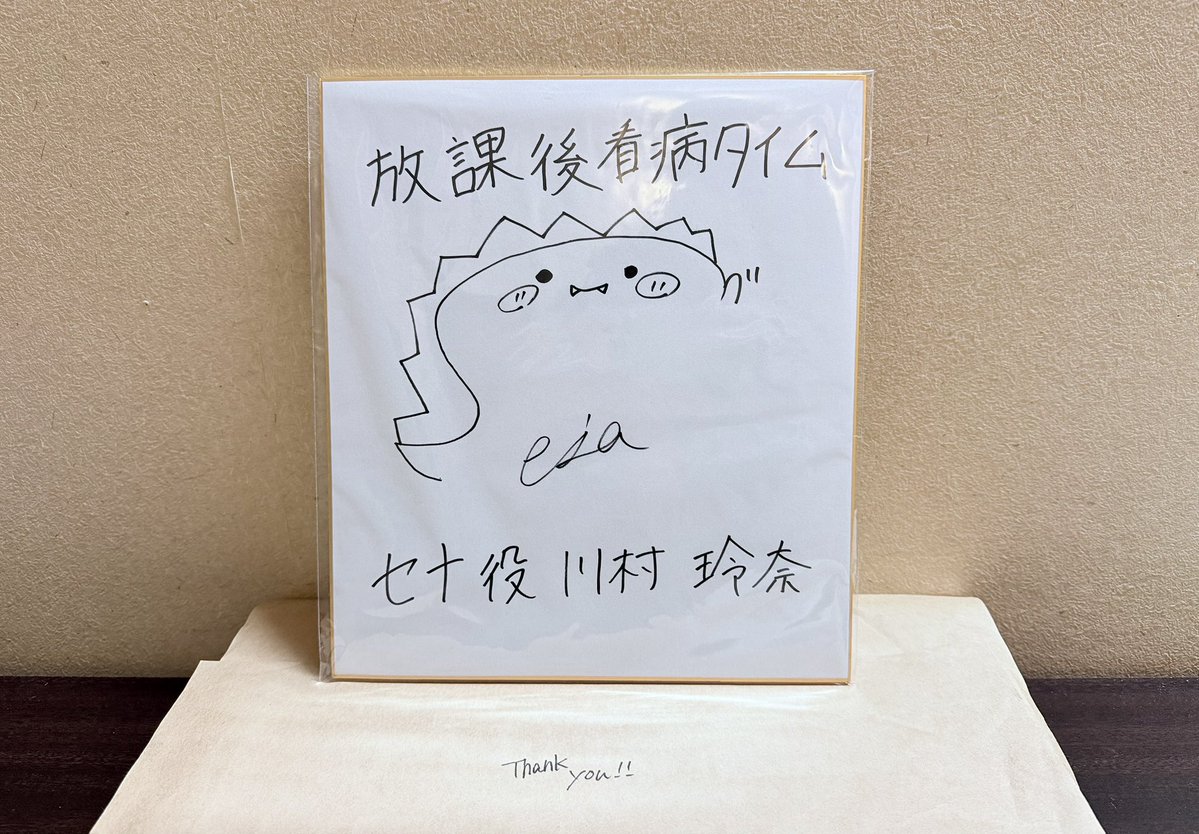 放課後看病タイム
セナ役 川村 玲奈
Thank
you!!